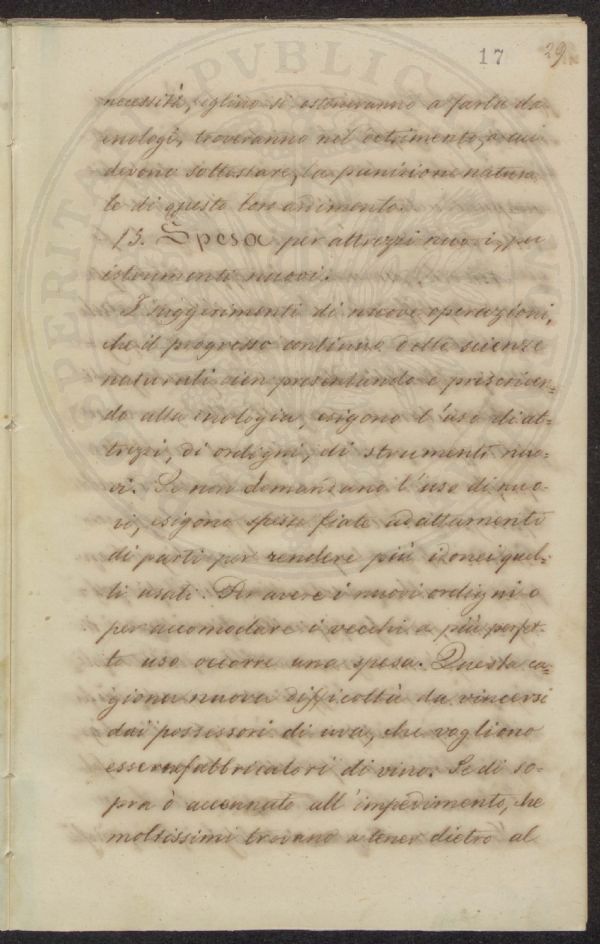 17 29
necessità, eglino si ostineranno a farla da
enologi, troveranno nel detrimento, a cui
devono sottostare, la punizione natura-
le di questo loro ardimento.
13. Spesa per attrezzi nuovi, per
istrumenti nuovi.
I suggerimenti di nuove operazioni,
che il progresso continuo delle scienze
naturali vien presentando e prescriven-
do alla enologia, esigono l'uso di at-
trezzi, di ordigni, di strumenti nuo-
vi. Se non domandano l'uso di nuo-
vi, esigono spesse fiate adattamenti
di parti per rendere più idonei quel-
li usati. Per avere i nuovi ordigni o
per accomodare i vecchi a più perfet-
to uso occorre una spesa. Questa ca-
giona nuova difficoltà da vincersi
dai possessori di uva, che vogliono
esserne fabbricatori di vino. Se di so-
pra ò accennato all'impedimento, che
moltissimi trovano a tener dietro al